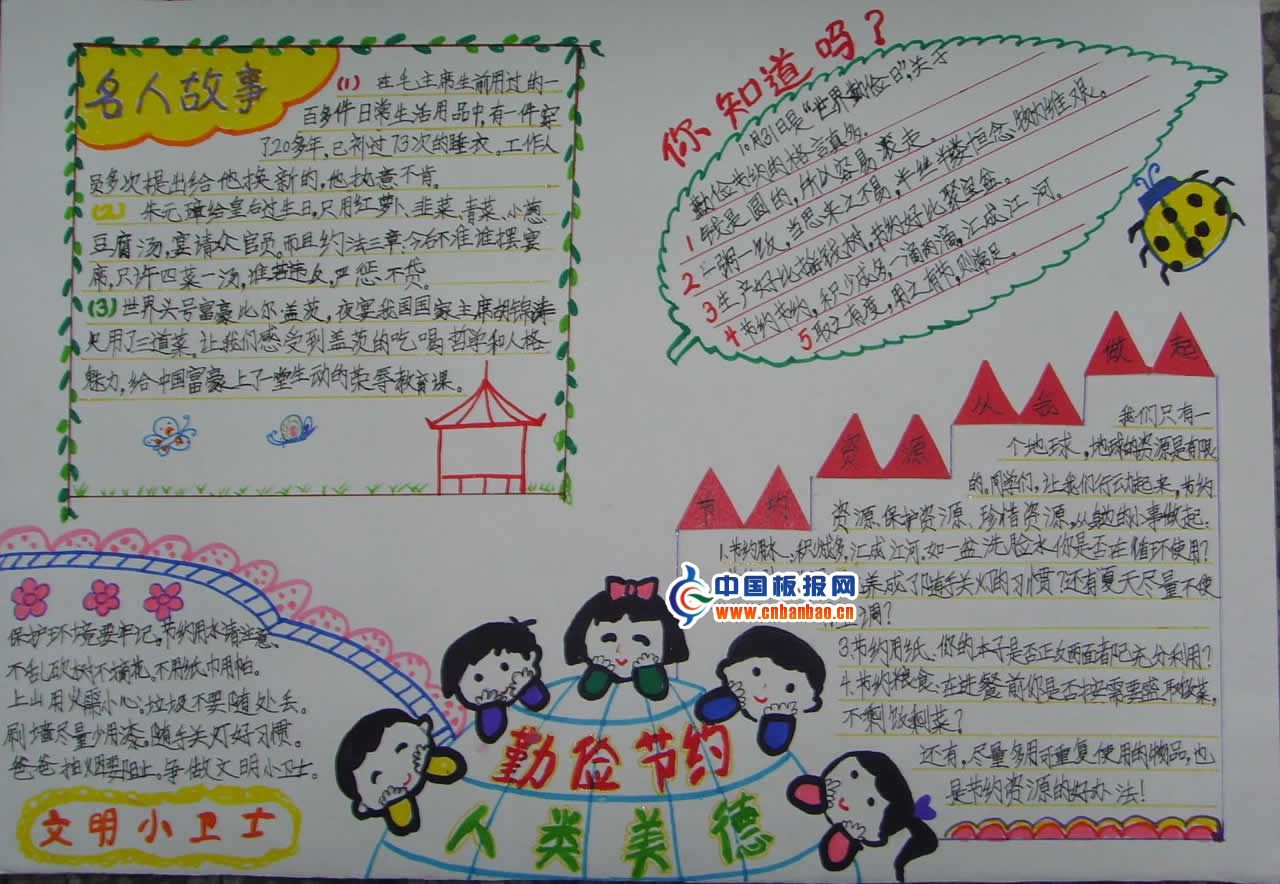 名人故事
(1) 在毛主席生前用过的一
百多件日常生活用品中,有一件穿
了20多年,已补过73次的睡衣。工作人
员多次提出给他换新的,他执意不肯。
(2) 朱元璋给皇后过生日,只用红萝卜、韭菜、青菜、小葱
豆腐汤,宴请众官员。而且约法三章:今后不准谁摆宴
席,只许四菜一汤,谁若违反,严惩不贷。
(3)世界头号富豪比尔·盖茨,夜宴我国国家主席胡锦涛
只用了三道菜。让我们感受到盖茨的吃喝哲学和人格
魅力,给中国富豪上了一堂生动的荣辱教育课。
你知道吗?
10月31日是“世界勤俭日”,关于
勤俭节约的格言真多。
1 钱是圆的,所以容易滚走。
2 一粥一饭,当思来之不易,半丝半缕恒念物力维艰。
3 生产好比摇钱树,节约好比聚宝盆。
4 节约节约,积少成多,一滴两滴,汇成江河。
5 取之有度,用之有节,则常足。
节约资源从我做起
我们只有一
个地球,地球的资源是有限
的。同学们,让我们行动起来,节约
资源、保护资源、珍惜资源,从身边的小事做起.
1.节约用水、积少成多,汇成江河.如一盆洗脸水你是否在循环使用?
养成了随手关灯的习惯?还有夏天尽量不使
调?
3.节约用纸、你的本子是否正反两面都已充分利用?
4.节约粮食.在进餐前你是否按需要盛取饭菜,
不剩饭剩菜?
还有,尽量多用可重复使用的物品,也
是节约资源的好办法!
中国板报网
www.cnbanbao.cn
保护环境要牢记。节约用水请注意,
不乱砍树不摘花。不用纸巾用帕。
上山用火需小心。垃圾不要随处丢。
刷墙尽量少用漆。随手关灯好习惯。
爸爸抽烟要阻止。争做文明小卫士。
文明小卫士
勤俭节约
人类美德